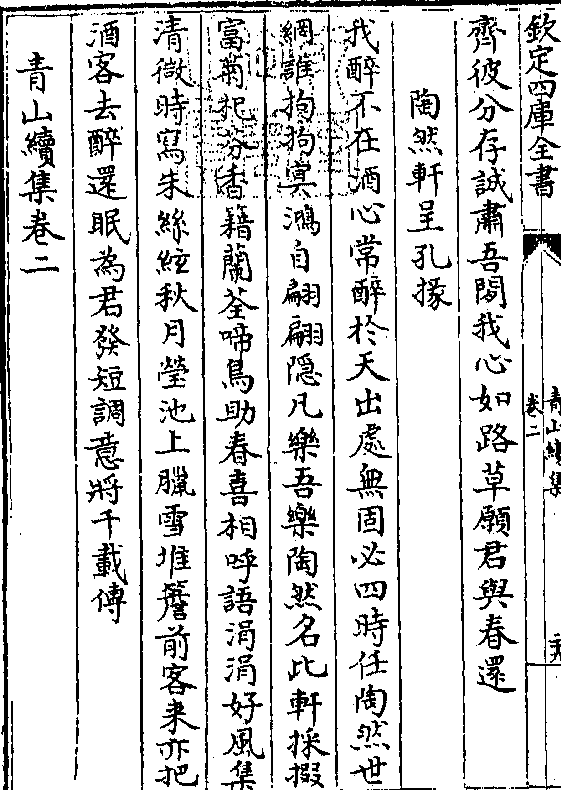 欽定四庫全書
青山續集
卷二
齊彼分存誠肅吾閽我心如路草願君與春還
陶然軒呈孔掾
我醉不在酒心常醉於天出處無固必四時任陶然世
網誰拘拘㝠鴻自翩翩隱凡樂吾樂陶然名此軒採掇
富菊杞芬香籍蘭荃啼鳥助春喜相呼語涓涓好風集
清微時寫朱絲絃秋月瑩池上臘雪堆簷前客来亦把
酒客去醉還眠為君發短調意將千載傳
青山續集卷二